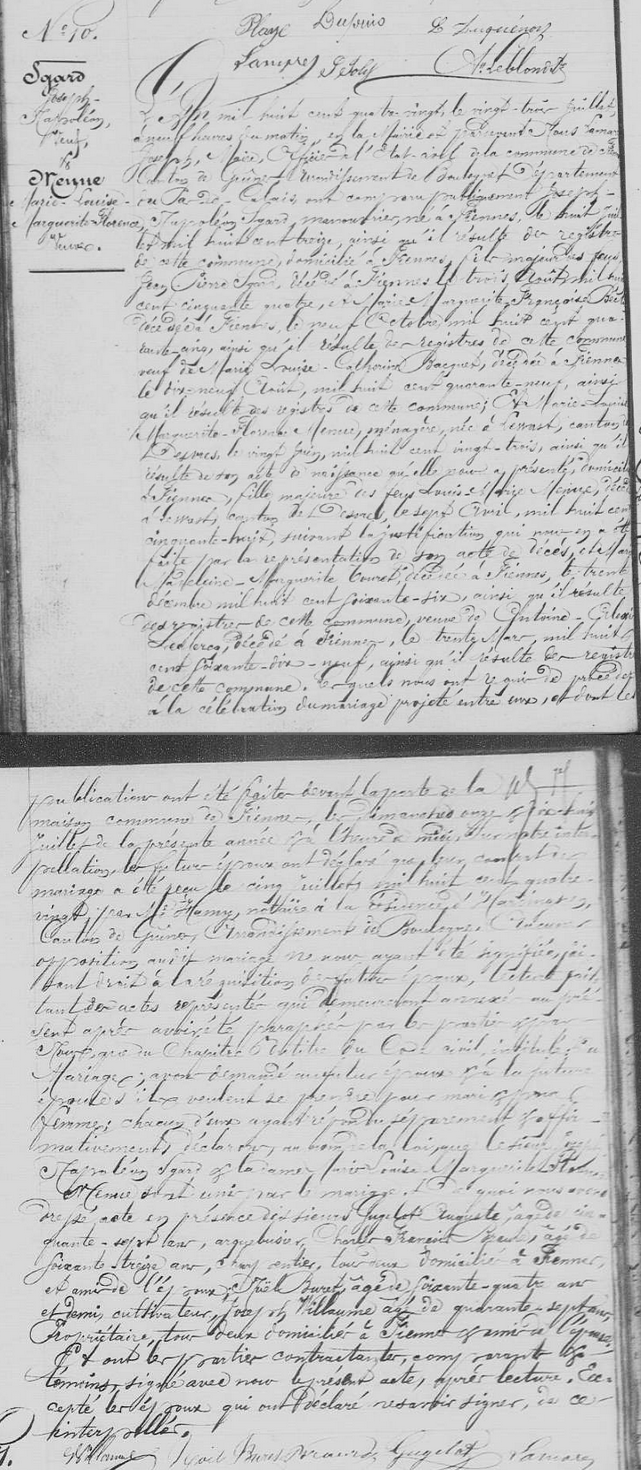 N° 10.
Sgard
Joseph-
Napoléon,
Veuf,
&
Menue
Marie-Louise-
Marguerite-Florence,
veuve.
L'An mil huit cent quatre-vingt, le vingt-trois Juillet,
à neuf heures du matin, en la Mairie et par devant Nous Lamarre
Joseph, Maire, Officier de l'Etat-civil de la commune de
Canton de Guînes, arrondissement de Boulogne, Département
du Pas-de-Calais, ont comparu publiquement Joseph-
Napoléon Sgard, manouvrier, né à Fiennes, le huit Juil-
let mil huit cent treize, ainsi qu'il résulte des registres
de cette commune, domicilié à Fiennes, fils majeur des feus
Jean Pierre Sgard, décédé à Fiennes le trois Août mil huit
cent cinquante quatre, et Marie Marguerite Françoise
décédée à Fiennes, le neuf Octobre mil huit cent qua-
rante-cinq, ainsi qu'il résulte des registres de cette commune
veuf de Marie Louise-Catherine Bacquet, décédée à Fiennes
le dix-neuf Août, mil huit cent quarante-neuf, ainsi
qu'il résulte des registres de cette commune; Et Marie-Louise
Marguerite-Florence Menue, ménagère, née à Lewast, canton de
Desvres, le vingt Juin, mil huit cent vingt-trois, ainsi qu'il
résulte de son acte de naissance qu'elle nous a présenté, domiciliée
à Fiennes, fille majeure des feus Louis-Marie Menue, décédé
à Lewast, canton de Desvres, le sept Avril, mil huit cent
cinquante-huit, suivant la justification, qui nous en a été
faite par la représentation de son acte de décès, et Marie
Madeleine-Marguerite décédée à Fiennes, le trente
décembre mil huit cent soixante-six, ainsi qu'il résulte
des registres de cette commune, veuve de Antoine-
Leclercq, décédé à Fiennes, le trente Mars, mil huit
cent soixante-dix-neuf, ainsi qu'il résulte des registres
de cette commune. Lesquels nous ont requis de procéder
à la célébration du mariage projeté entre eux, et dont les
publications ont été faites devant la porte de la
maison commune de Fiennes, les Dimanches onze & dix-huit
Juillet de la présente année & à l'heure de midi. Sur notre inter-
pellation, les futurs époux ont déclaré que leur contrat de
mariage a été reçu le cinq Juillet mil huit cent quatre-
vingt, par Me Hamy, notaire à la résidence d'Hardinghen,
Canton de Guînes, Arrondissement de Boulogne. Aucune
opposition audit mariage ne nous ayant été signifiée, fai-
sant droit à la réquisition des futurs époux, lecture fait
tant des actes représentés qui demeureront annexés au pré-
sent après avoir été paraphés par les parties & par
Nous, que du Chapitre six du titre du Code civil, intitulé: Du
Mariage; avons demandé au futur époux & à la future
épouse s'ils veulent se prendre pour mari & pour
femme; chacun d'eux ayant répondu séparément & affir-
mativement, déclarons, au nom de la loi, que le sieur Joseph
Napoléon Sgard & la dame Marie Louise Marguerite Florence
Menue sont unis par le mariage. Et de quoi nous avons
dressé acte en présence des sieurs Gugelot Auguste, âgé de cin-
quante-sept ans, arquebusier, Charles François âgé de
soixante-treize ans, charpentier, tous deux domiciliés à Fiennes,
et amis de l'époux, Noël Buret, âgé de soixante-quatre ans
et demi, cultivateur, Joseph Villaume âgé de quarante-sept ans,
Propriétaire, tous deux domiciliés à Fiennes & amis de l'épouse.
Et ont les parties contractantes, comparants &
témoins, signé avec nous le présent acte, après lecture. Ex-
cepté les époux qui ont déclaré ne savoir signer, de ce
interpellés.
Gugelot Lamarre